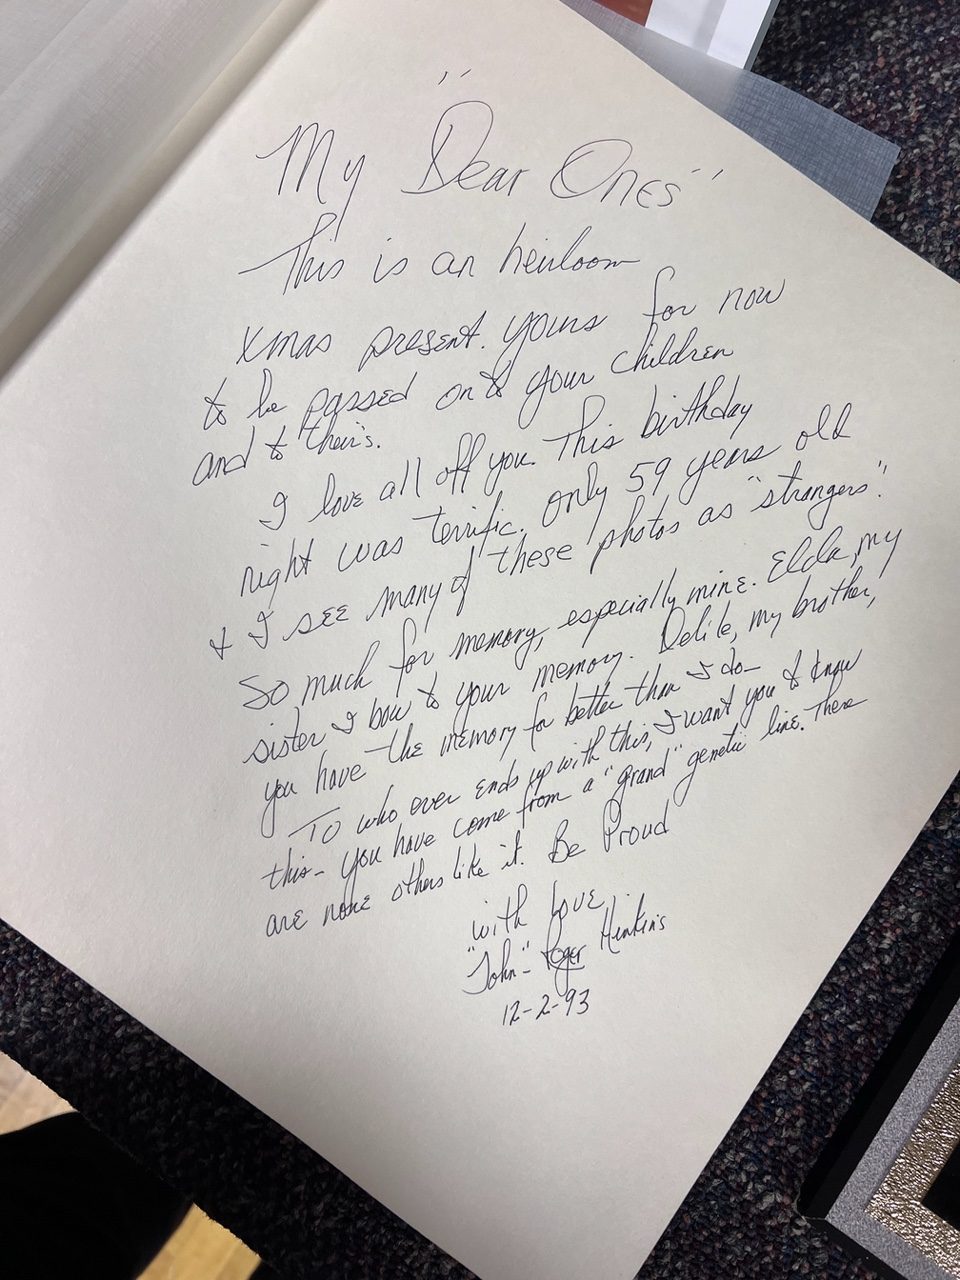 "
My Dear Ones"
This is an heirloom
Xmas present. Yours for now
to be passed on to your children
and to their's.
I love all off you. This birthday
right was terrific. Only 59 years old
& I see many of these photos as "strangers".
So much for memory, especially mine. Elda, my
sister I bow to your memory. Delile, my brother,
you have the memory far better than I do—
To who ever ends up with this, I want you to know
this— You have come from a "grand" genetic line. There
are none others like it. Be Proud
with love,
"John"— Roger Henkins
12-2-93